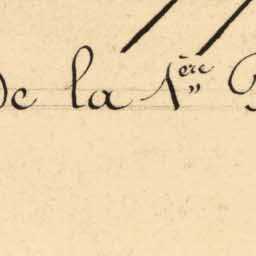 de la 1ère